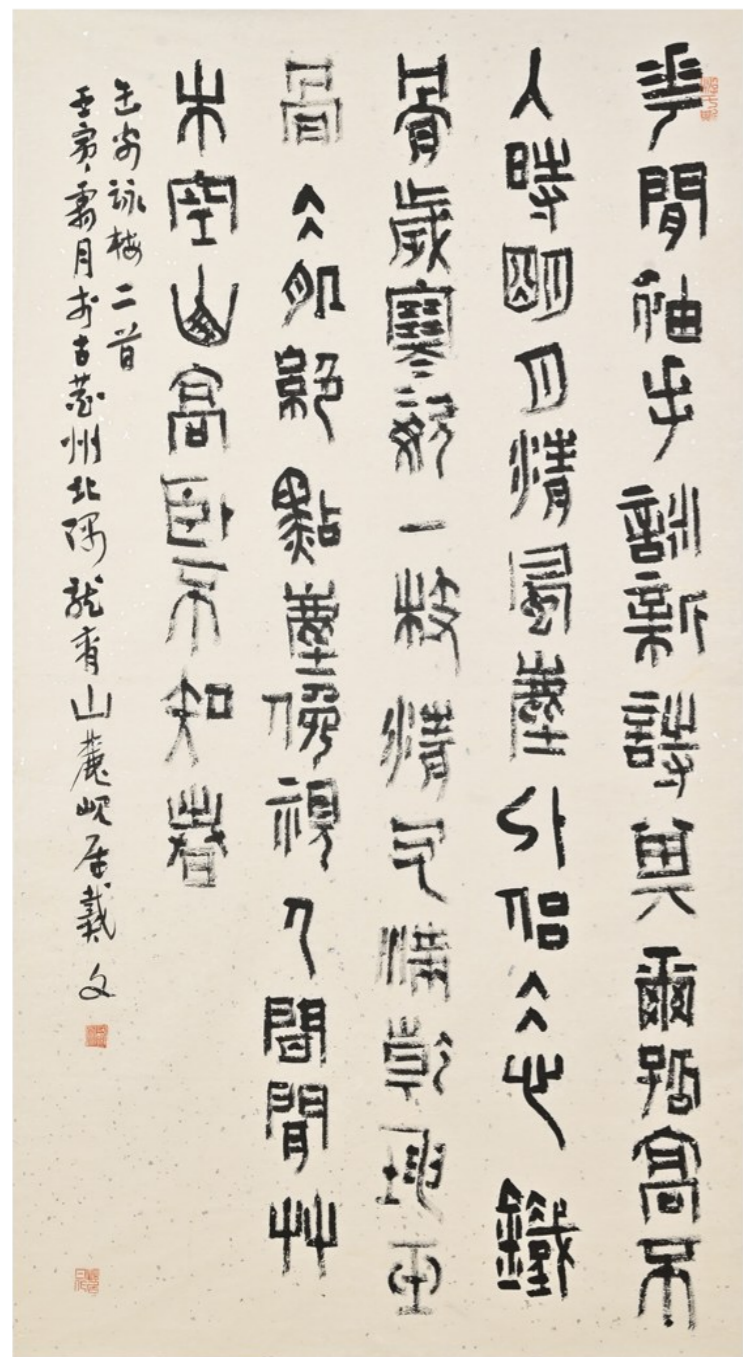 華間袖手詶新詩與爾孤高不
入時明月清風塵外侶冰心鐵
骨歲寒姿一枝清氣滿乾坤玉
骨冰肌絕點塵俛視人間閒草
木空山高臥不知春
缶翁詠梅二首
壬寅霜月於古州北隅龍脊山麓峴居戴文